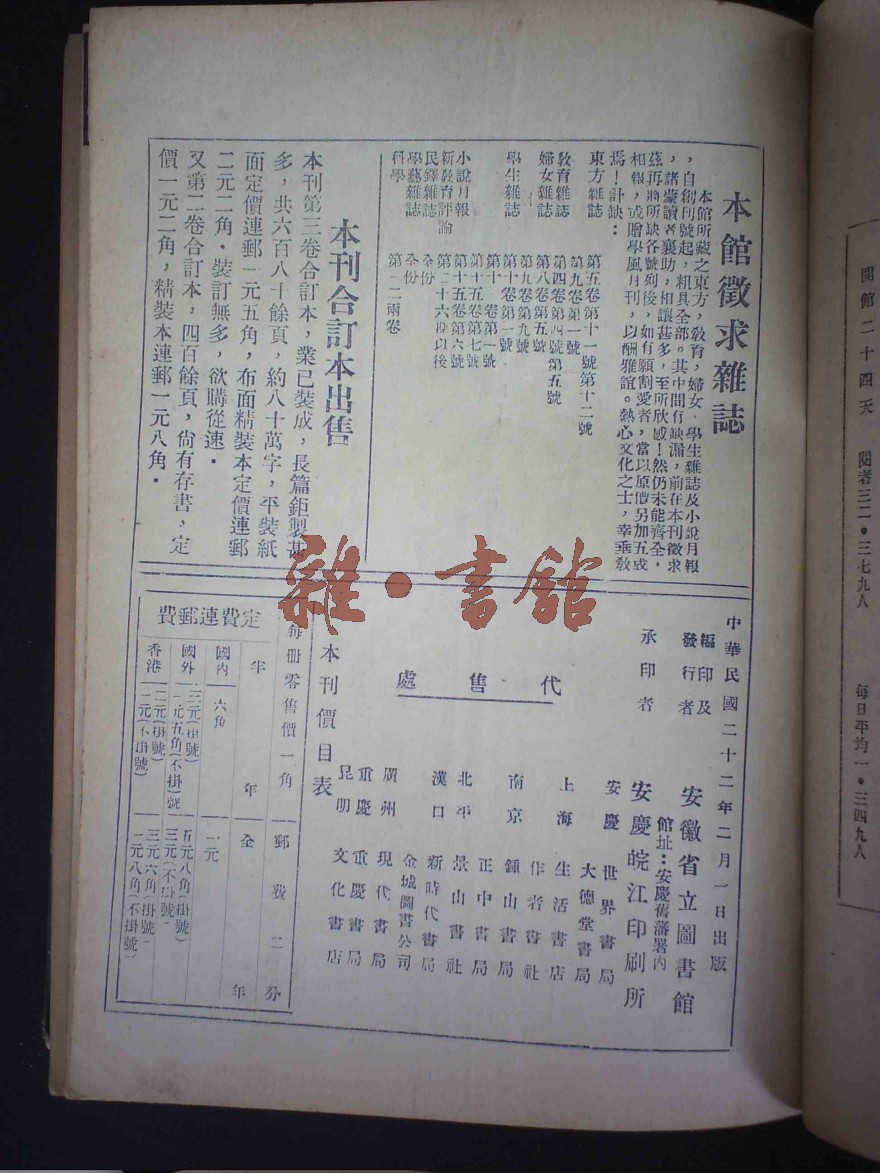 本館徵求雜誌
本館所藏之東方,敎育,婦女,學生雜誌及小說月報
,自創刊號起,粗具全部。其中間有缺漏,前在本刊徵求
,諸蒙讀者襄助,相讓甚多,至所欣感!然仍未能齊全,
茲再將所缺各號列後,如有願割愛者,當以原價另加五成
相報,或贈學風月刊,以酬雅誼。熱心文化之士,幸垂敎
焉!計缺:
東方雜誌 第五卷第十一號第十二號
第九卷第一號
敎育雜誌 第四卷第四號第五號
婦女雜誌 第八卷第五號
第九卷第九號
學生雜誌 第十卷第一號
第十一卷第一號
第十五卷第七號
小說月報 第十五卷第六號
新敎育評論 第二十六期以後
民鐸雜誌 全份
學藝雜誌 全份
科學 第一二兩卷
本刊合訂本出售
本刊第三卷合訂本,業已裝成,長篇鉅製甚
多,共六百八十餘頁,約八十萬字,平裝紙
面定價連郵一元五角,布面精裝本定價連郵
二元二角.裝訂無多,欲購從速.
又第二卷合訂本,四百餘頁,尙有存書,定
價一元二角,精裝本連郵一元八角.
中華民國二十二年二月一日出版
編印及發行者 安徽省立圖書館
館址:安慶舊藩署內
承印者 安慶皖江印刷所
代售處
安慶 世界書局
大德堂書局
上海 生活書店
作者書社
南京 鍾山書局
正中書局
北平 景山書社
漢口 新時代書局
金城圖書公司
廣州 現代書局
重慶 重慶書局
昆明 文化書店
本刊價目表
每册零售價一角 郵費二分
定費連郵費
半年 全年
國內 六角 一元
國外 三元(掛號) 五元八角(掛號)
一元五角(不掛號) 三元(不掛號)
香港 二元(掛號) 三元六角(掛號)
一元(不掛號) 一元八角(不掛號)
雜·書館
開館二十四天 閱者三二·三七九人 每日平均一·三四九人